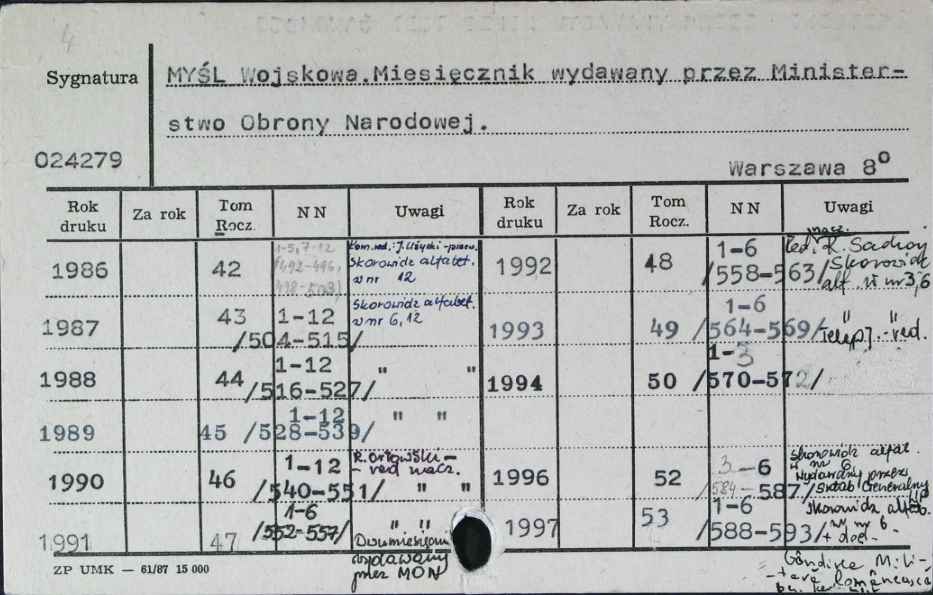 4
Sygnatura
MYŚL Wojskowa.Miesięcznik wydawany przez Minister-
stwo Obrony Narodowej.
024279
Warszawa 8⁰
Rok druku Za rok Tom Rocz. NN Uwagi Rok druku Za rok Tom Rocz. NN Uwagi
1986 42 1-5, 7-12 /492-496, 498-503/
Skorowidz alfabet. w nr 12
1987 43 1-12 /504-515/ Skorowidz alfabet. w nr 6, 12
1988 44 1-12 /516-527/ " "
1989 45 1-12 /528-539/ " "
1990 46 1-12 /540-551/ R. Orłowski - red. nacz. " "
1991 47 1-6 /552-557/ " " Dwumiesięcznik wydawany przez MON
1992 48 1-6 /558-563/ nacz. red. R. Skorowidz alf. w nr 3,6
1993 49 1-6 /564-569/ " " red.
1994 50 1-3 /570-572/
1996 52 3-6 /584-587/ Skorowidz alfab. w nr 6 Wydawany przez Sztab Generalny WP
1997 53 1-6 /588-593/ Skorowidz alfab. w nr 6. + dod.
Gândirea Mili-
-tară Românească
ZP UMK — 61/87 15 000